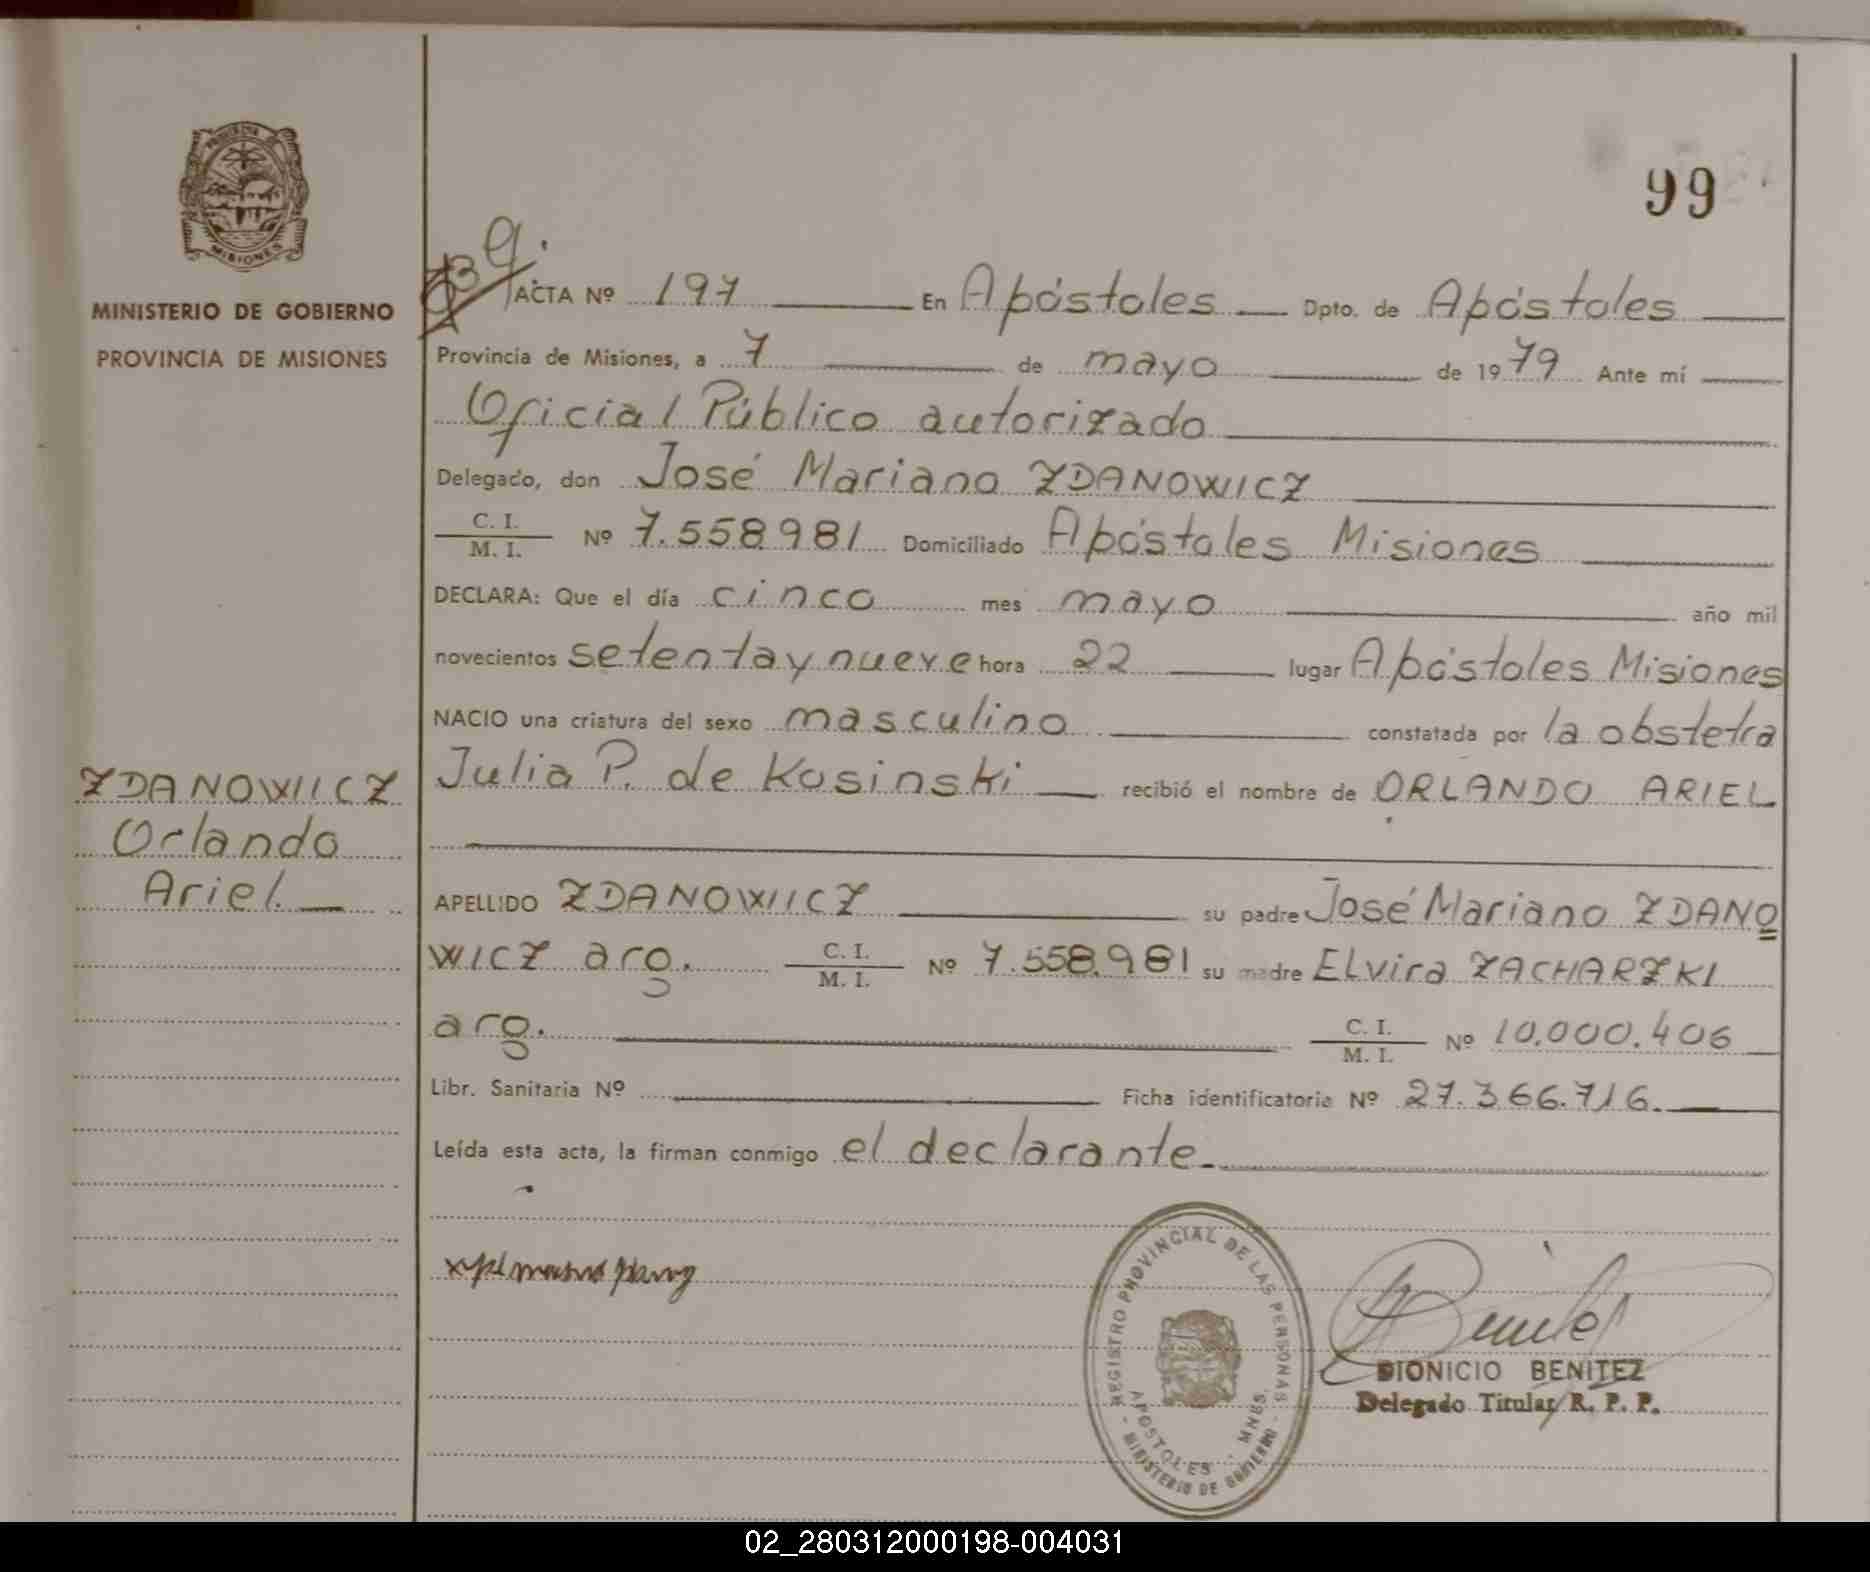 99
MINISTERIO DE GOBIERNO
PROVINCIA DE MISIONES
MISIONES
ACTA Nº 197 En Apóstoles Dpto. de Apóstoles
Provincia de Misiones, a 7 de mayo de 1979 Ante mí
Oficial Público autorizado
Delegado, don José Mariano ZDANOWICZ
C. I.
M. I. Nº 7.558.981 Domiciliado Apóstoles Misiones
DECLARA: Que el día cinco mes mayo año mil
novecientos setenta y nueve hora 22 lugar Apóstoles Misiones
NACIO una criatura del sexo masculino constatada por la obstetra
Julia P. de Kosinski recibió el nombre de ORLANDO ARIEL
ZDANOWIICZ
Orlando
Ariel.
APELLIDO ZDANOWIICZ su padre José Mariano ZDANO
WICZ arg. C. I.
M. I. Nº 7.558.981 su madre ELvira ZACHARZKI
arg. C. I.
M. I. Nº 10.000.406
Libr. Sanitaria Nº Ficha identificatoria Nº 27.366.716.
Leída esta acta, la firman conmigo el declarante.
REGISTRO PROVINCIAL DE LAS PERSONAS
APOSTOLES - MNES.
- MINISTERIO DE GOBIERNO -
DIONICIO BENITEZ
Delegado Titular R. P. P.
02_280312000198-004031